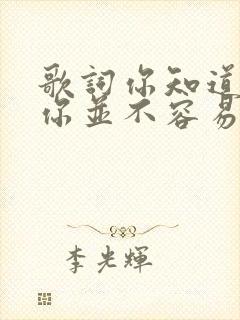 歌詞你知道
你並不容易
李光輝